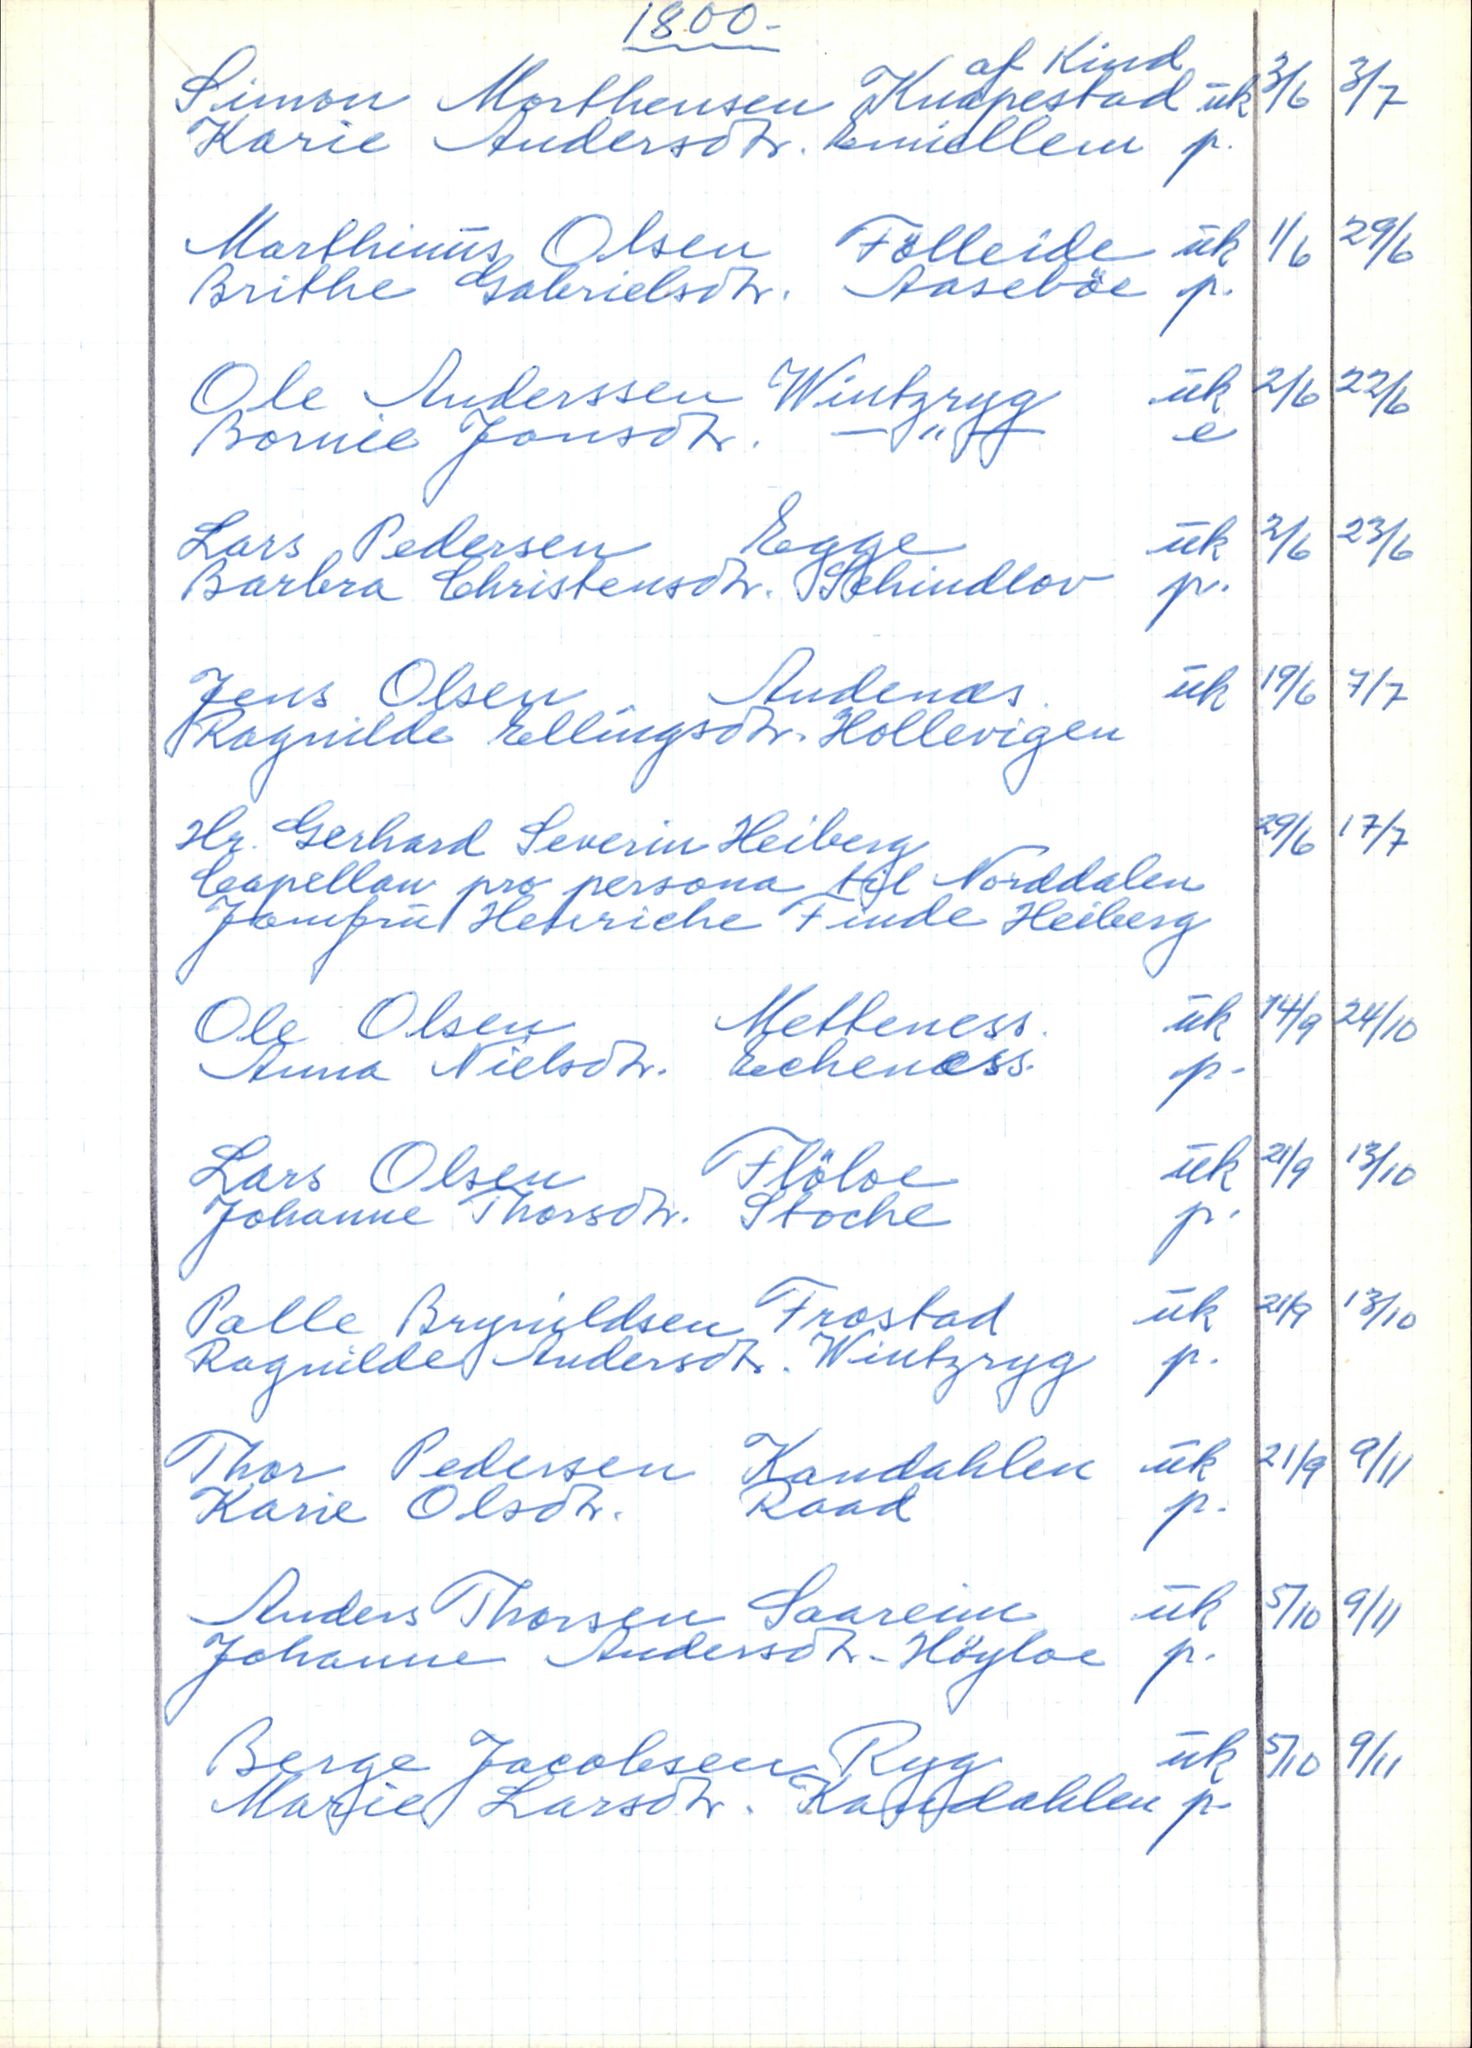 1800-
af Kind
Simon Morthensen Knapestad uk 3/6 3/7
Karie Andersdtr. Emiellem p.
Marthinus Olsen Fölleide uk 1/6 29/6
Brithe Gabrielsdtr. Aaseböe p.
Ole Anderssen Wintzryg uk 2/6 22/6
Bornie Jonsdtr. — " — e
Lars Pedersen Egge uk 2/6 23/6
Barbra Christensdtr. Schindlov p.
Jens Olsen Andenæs. uk 19/6 7/7
Ragnilde Ellingsdtr. Hollevigen
Hr. Gerhard Severin Heiberg 29/6 17/7
Capellan pro persona til Norddalen
Jomfru Henriche Finde Heiberg
Ole Olsen Metteness. uk 14/9 24/10
Anna Nielsdtr. Echenæss. p.
Lars Olsen Flöloe uk 21/9 13/10
Johanne Thorsdtr. Stoche p.
Palle Brynildsen Frostad uk 21/9 13/10
Ragnilde Andersdtr. Wintzryg p.
Thor Pedersen Kandahlen uk 21/9 9/11
Karie Olsdtr. Raad p.
Anders Thorsen Saareim uk 5/10 9/11
Johanne Andersdtr- Höyloe p.
Berge Jacobsen Ryg uk 5/10 9/11
Marie Larsdtr. Kandahlen p.